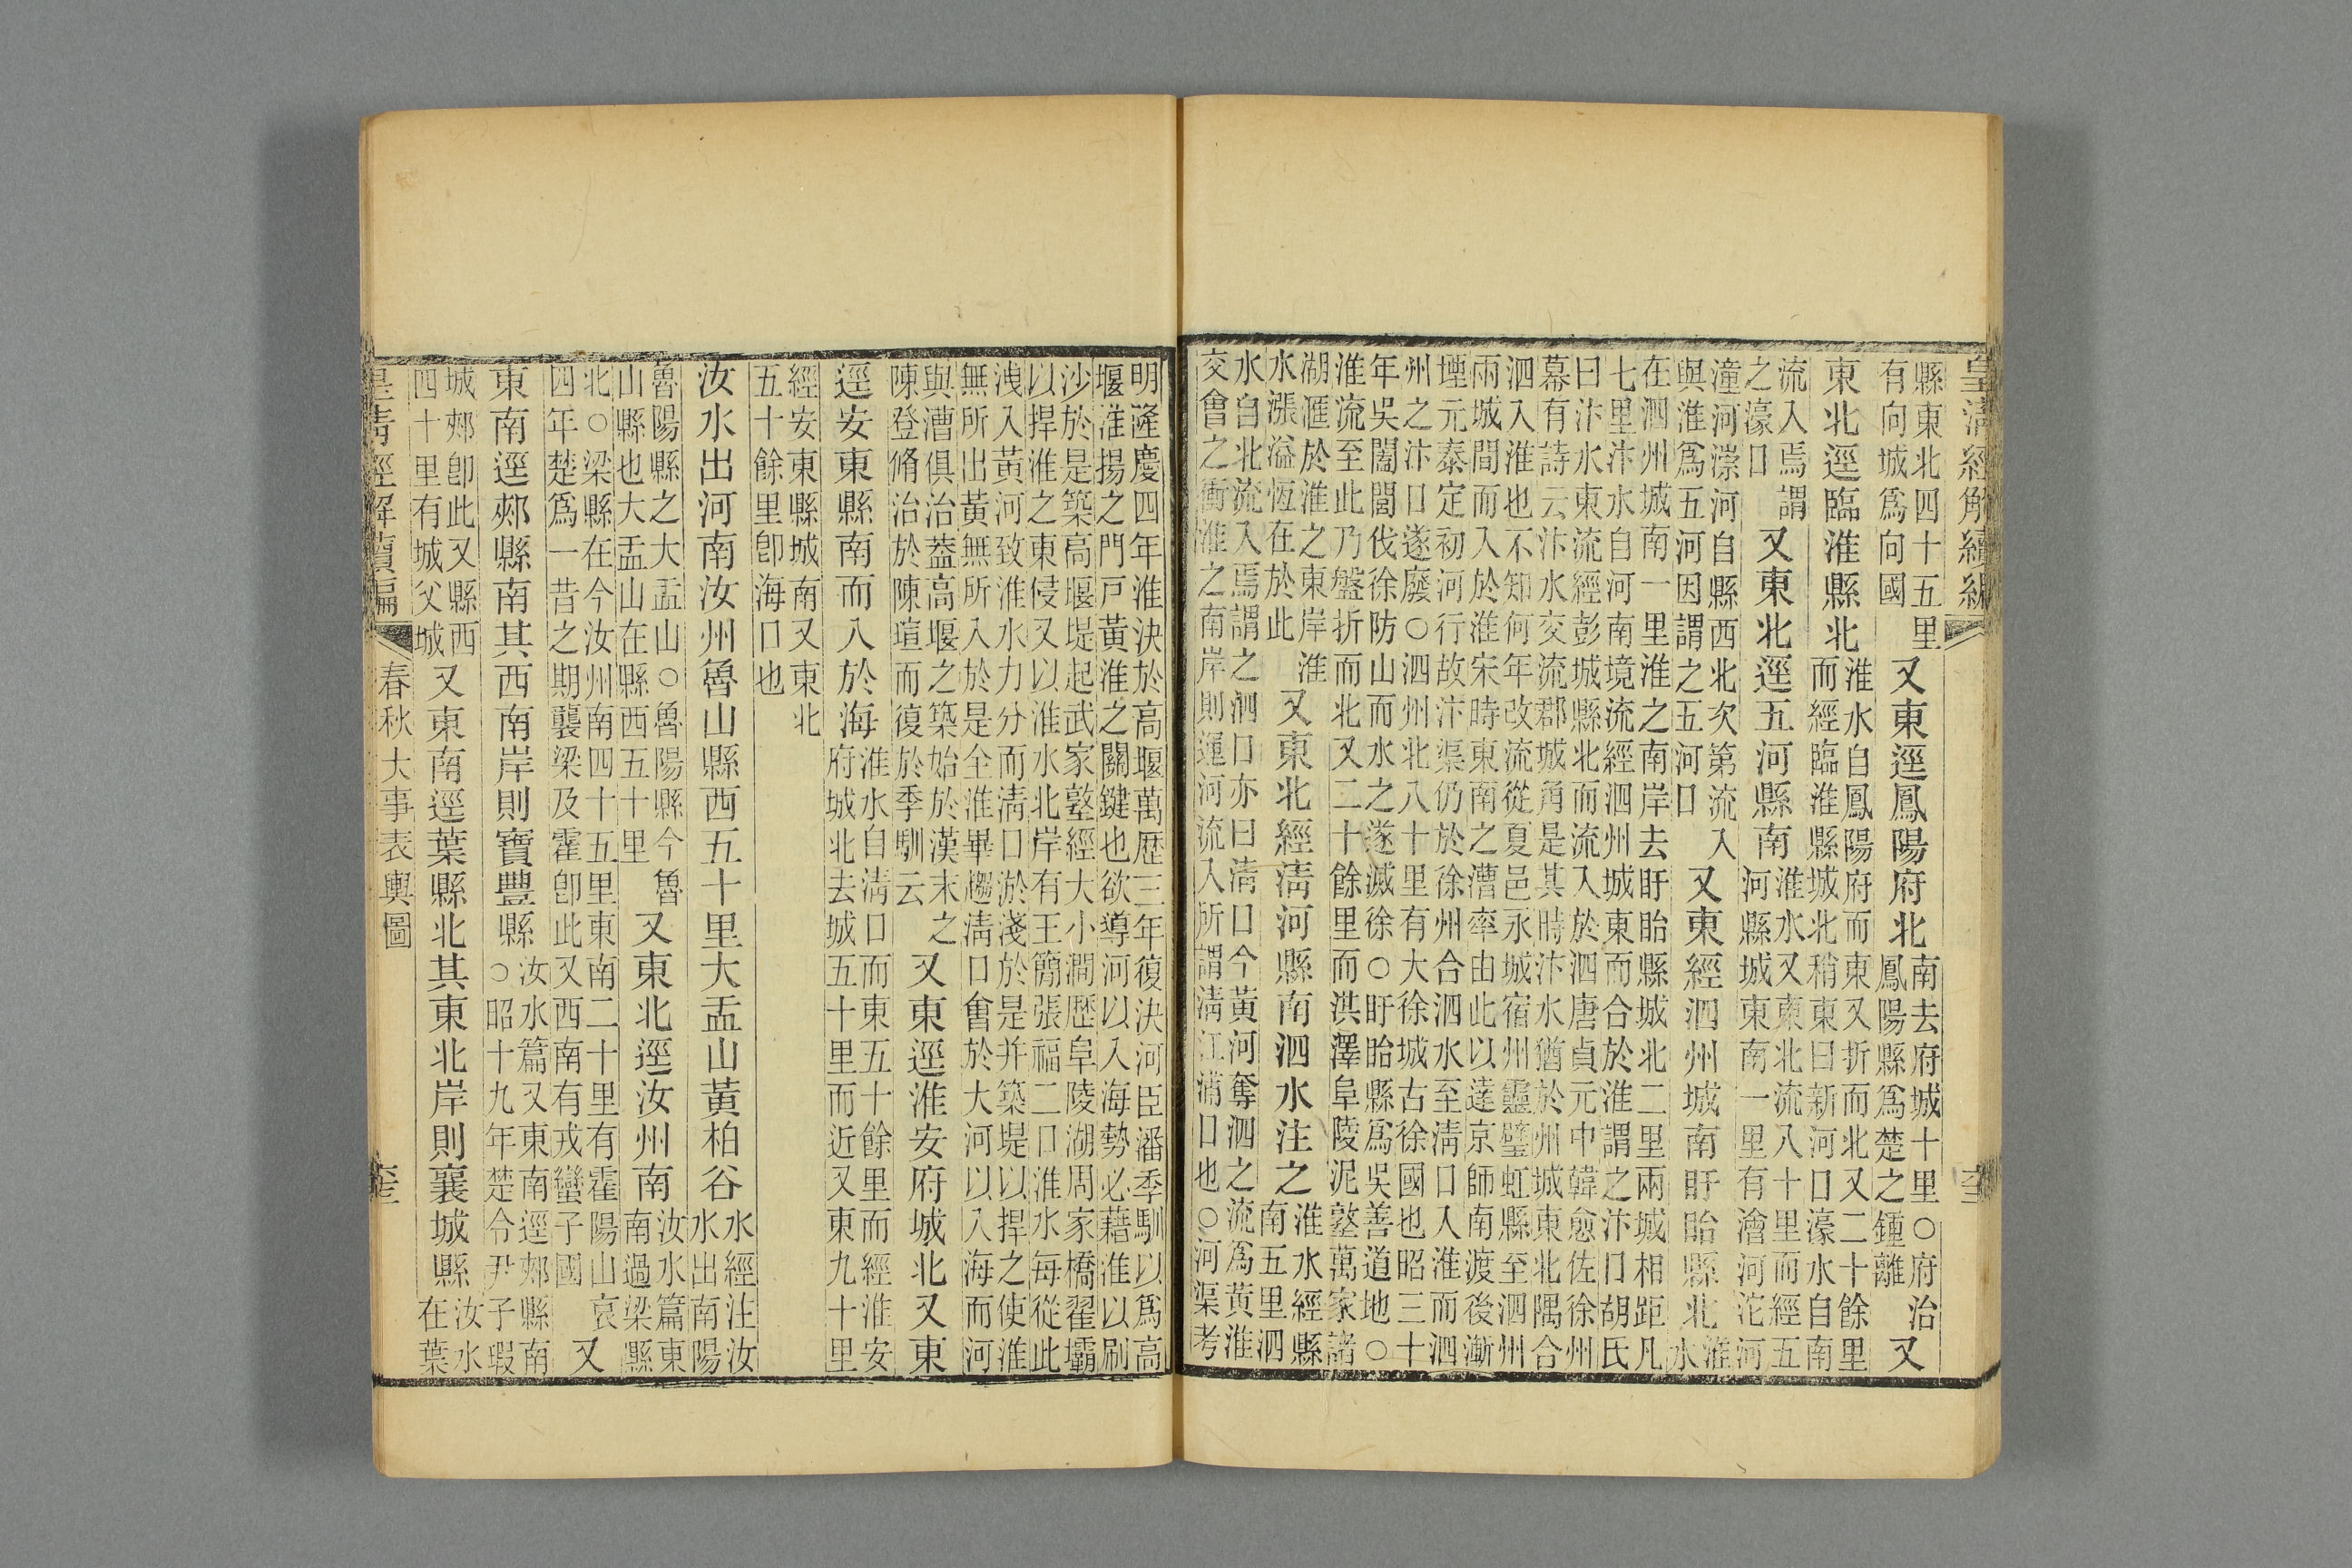 皇清經解續編
縣東北四十五里
有向城爲向國
又東逕鳳陽府北
南去府城十里○府治
鳳陽縣爲楚之鍾離
又
東北逕臨淮縣北
淮水自鳳陽府而東又折而北又二十餘里
而經臨淮縣城北稍東曰新河口濠水自南
流入焉謂
之濠口
又東北逕五河縣南
淮水又東北流八十里而經五
河縣城東南一里有澮河沱河
潼河漴河自縣西北次第流入
與淮爲五河因謂之五河口
又東經泗州城南盱眙縣北
淮
水
在泗州城南一里淮之南岸去盱眙縣城北二里兩城相距凡
七里汴水自河南境流經泗州城東而合於淮謂之汴口胡氏
曰汴水東流經彭城縣北而流入於泗唐貞元中韓愈佐徐州
幕有詩云汴水交流郡城角是其時汴水猶於州城東北隅合
泗入淮也不知何年改流從夏邑永城宿州靈璧虹縣至泗州
兩城間而入於淮宋時東南之漕率由此以達京師南渡後漸
堙元泰定初河行故汴渠仍於徐州合泗水至淸口入淮而泗
州之汴口遂廢○泗州北八十里有大徐城古徐國也昭三十
年吳闔閭伐徐防山而水之遂滅徐○盱眙縣爲吳善道地○
淮流至此乃盤折而北又二十餘里而洪澤阜陵泥墪萬家諸
湖滙於淮之東岸淮
水漲溢恆在於此
又東北經淸河縣南泗水注之
淮水經縣
南五里泗
水自北流入焉謂之泗口亦曰淸口今黃河奪泗之流爲黃淮
交會之衝淮之南岸則運河流入所謂淸江浦口也○河渠考
明隆慶四年淮決於高堰萬歷三年復決河臣潘季馴以爲高
堰淮揚之門戸黃淮之關鍵也欲導河以入海勢必藉淮以刷
沙於是築高堰堤起武家墪經大小澗歷阜陵湖周家橋翟壩
以捍淮之東侵又以淮水北岸有王簡張福二口淮水每從此
洩入黃河致淮水力分而淸口淤淺於是并築堤以捍之使淮
無所出黃無所入於是全淮畢趨淸口會於大河以入海而河
與漕俱治葢高堰之築始於漢末之
陳登脩治於陳瑄而復於季馴云
又東逕淮安府城北又東
逕安東縣南而入於海
淮水自淸口而東五十餘里而經淮安
府城北去城五十里而近又東九十里
經安東縣城南又東北
五十餘里卽海口也
汝水出河南汝州魯山縣西五十里大盂山黃柏谷
水經注汝
水出南陽
魯陽縣之大盂山○魯陽縣今魯
山縣也大盂山在縣西五十里
又東北逕汝州南
汝水篇東
南過梁縣
北○梁縣在今汝州南四十五里東南二十里有霍陽山哀
四年楚爲一昔之期襲梁及霍卽此又西南有戎蠻子國
又
東南逕郟縣南其西南岸則寶豐縣
汝水篇又東南逕郟縣南
○昭十九年楚令尹子瑕
城郟卽此又縣西
四十里有城父城
又東南逕葉縣北其東北岸則襄城縣
汝水
在葉
皇清經解續編
春秋大事表輿圖